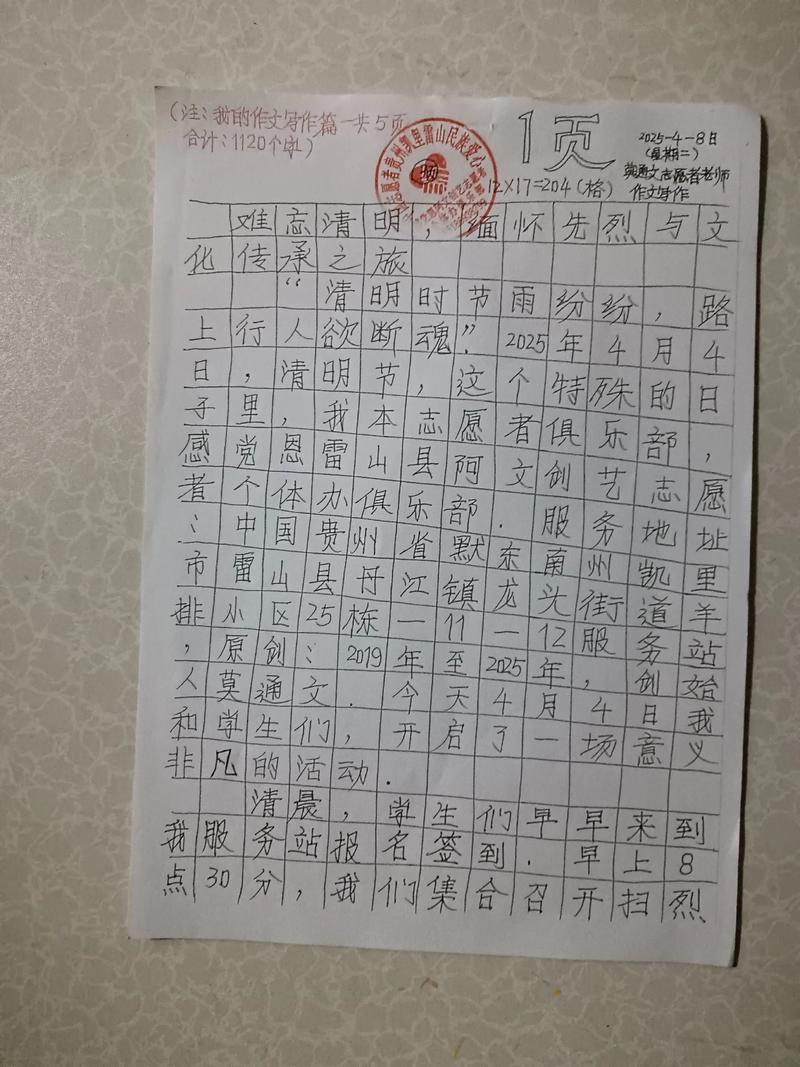 （注：我的作文写作篇一共5页
合计：1120个字）
1页
2025-4-8日
（星期二）
莫通文志愿者老师
作文写作
12×17=204（格）
志愿者贵州凯里雷山民族爱心
难忘清明，缅怀先烈与文
化传承之旅
“清明时节雨纷纷，路
上行人欲断魂”．2025年4月4
日，清明节，这个特殊的日
子里，我本志愿者俱乐部，
感党恩雷山县阿文创艺志愿
者个体办俱乐部．服务地址
：中国贵州省默东南州凯里
市雷山县丹江镇龙头街道羊
排小区25栋一11一12服务站
，原创：2019年至2025年，创始
人莫通文．今天4月4日我
和学生们，开启了一场意义
非凡的活动．
清晨，学生们早早来到
我服务站报名签到．早上8
点30分，我们集合召开扫烈